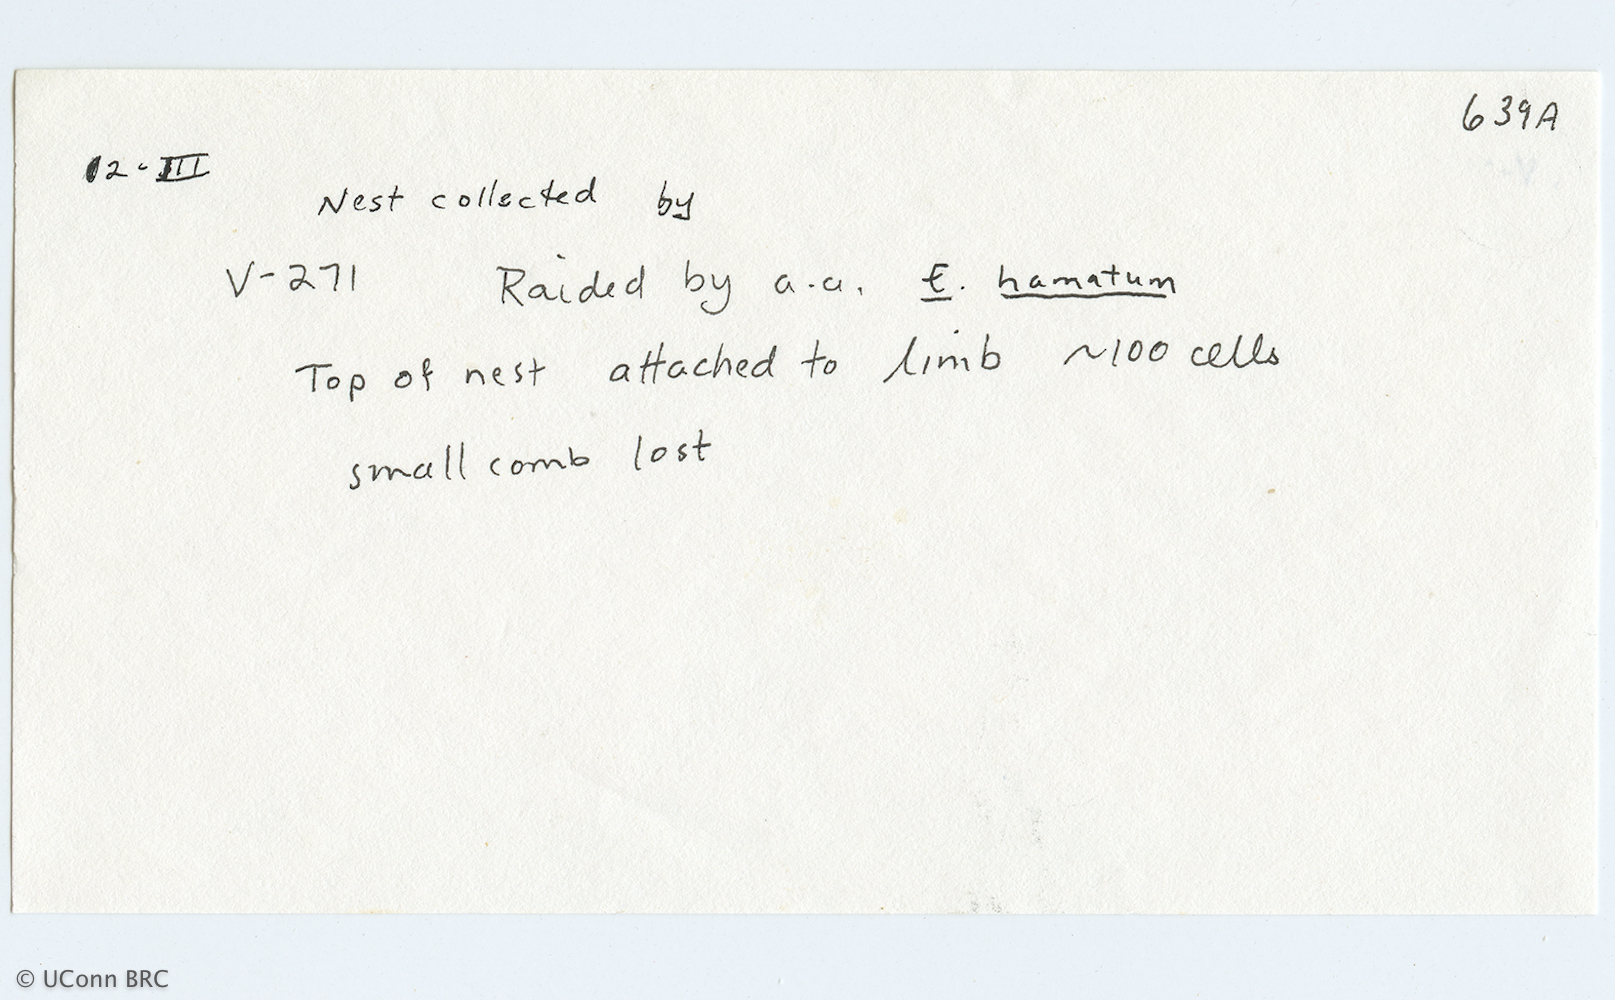 639A
12-III
Nest collected by
V-271 Raided by a.a. E. hamatum
Top of nest attached to limb ~100 cells
small comb lost
© UConn BRC